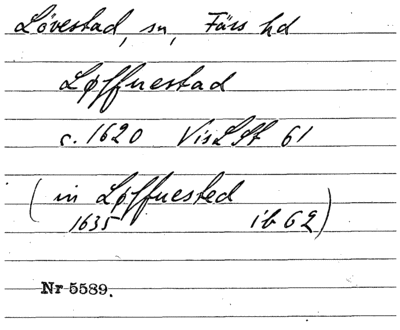 Lövestad, sn, Färs hd
Løffuestad
c. 1620 VisLSt 61
(in Løffuested
1635 ib 62)
Nr 5589.